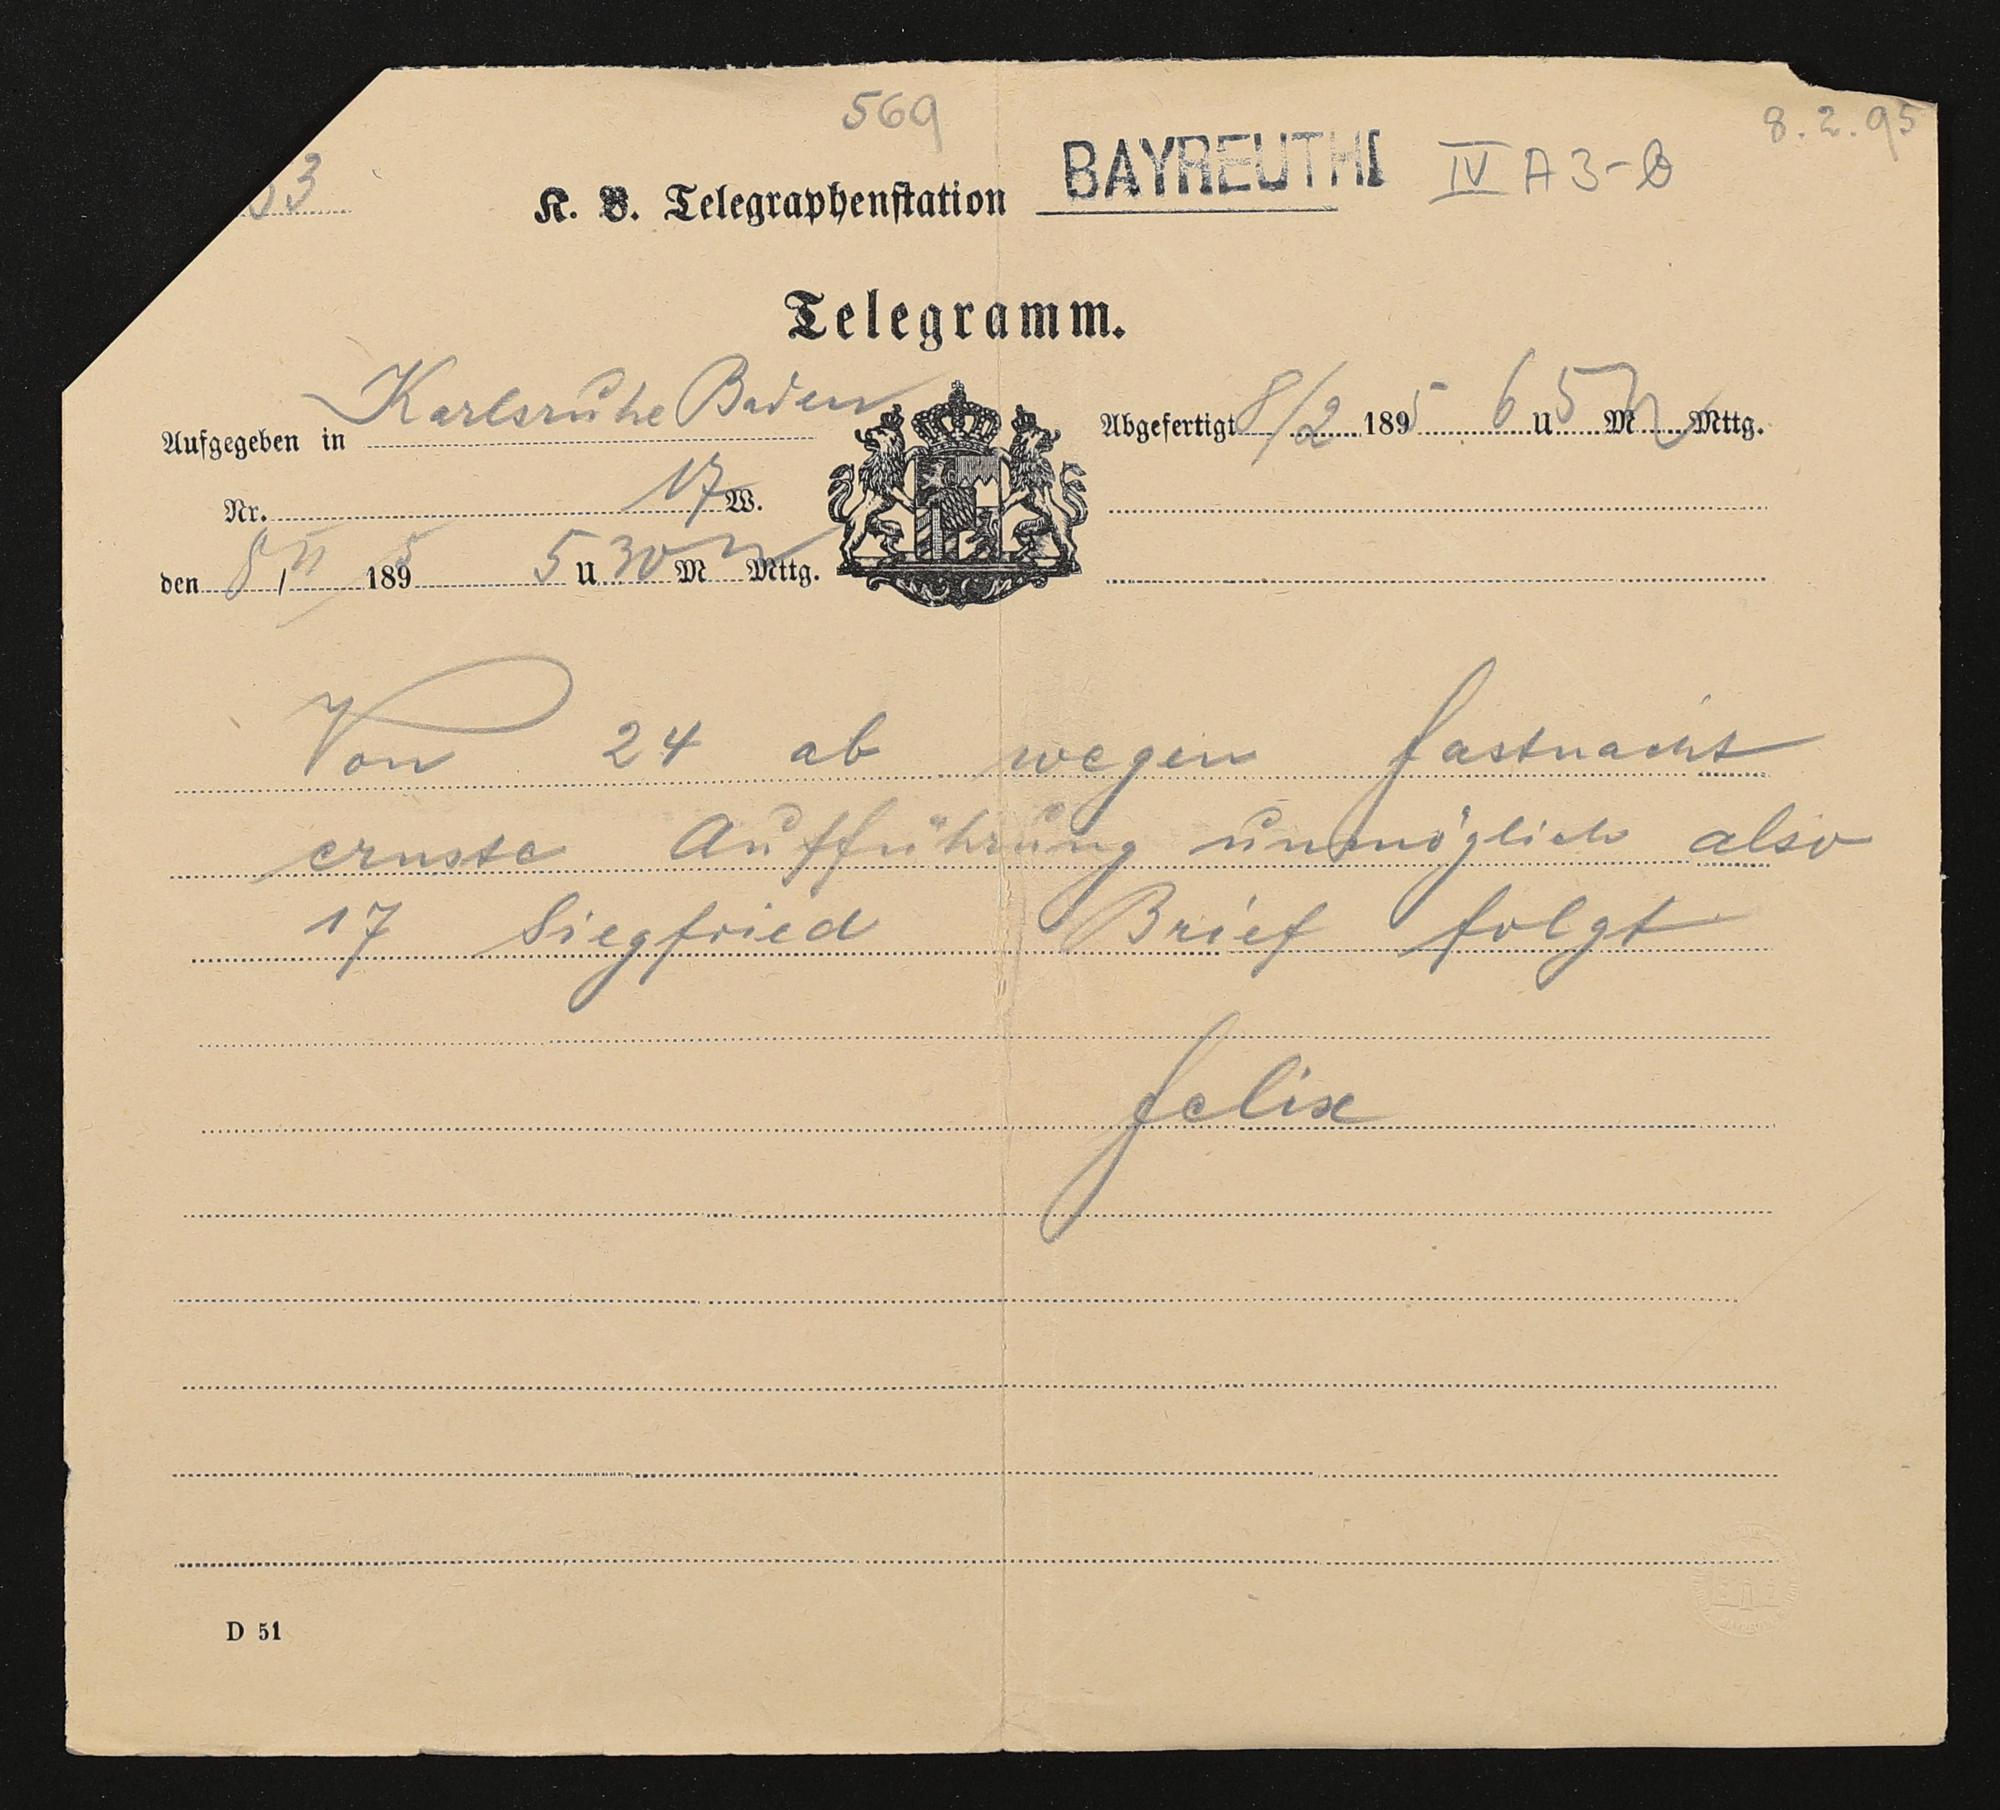 569
8.2.95
53
K. B. Telegraphenstation BAYREUTH I IV A 3-
Telegramm.
Aufgegeben in Karlsruhe Baden
Abgefertigt 8/2 1895 6 U 5 M N Mttg.
Nr. 17 W.
den 8/II 1895 5 U 30 M N Mttg.
Von 24 ab wegen fastnacht
ernste Aufführung unmöglich also
17 Siegfried Brief folgt
felix
D 51